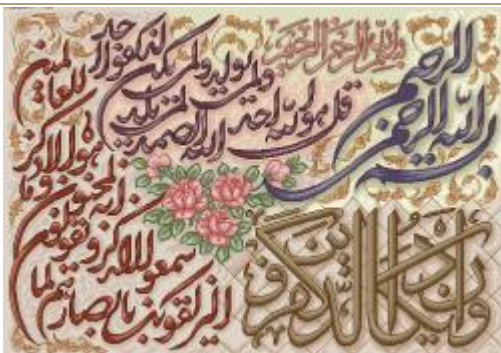 بسم الله الرحمن الرحيم
بسم الله الرحمن الرحيم
قل هو الله احد
الله الصمد
لم يلد
ولم يولد ولم يكن
له كفوا احد
وان يكاد الذين كفروا
ليزلقونك بابصارهم لما
سمعوا الذكر ويقولون
انه لمجنون وما
هو الا ذكر
للعالمين